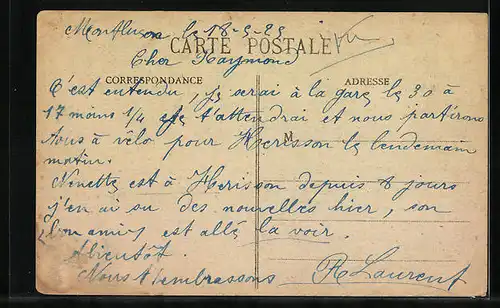 Montluçon le 18-5-25
CARTE POSTALE
Cher Raymond
CORRESPONDANCE
ADRESSE
C'est entendu, je serai à la gare le 30 à
17 moins 1/4 je t'attendrai et nous partirons
tous à vélo pour Herisson le lendemain
M
matin.
Ninette est à Herisson depuis 8 jours
j'en ai eu des nouvelles hier, son
bon amis est allé la voir.
Abientôt.
Nous t'embrassons R Laurent